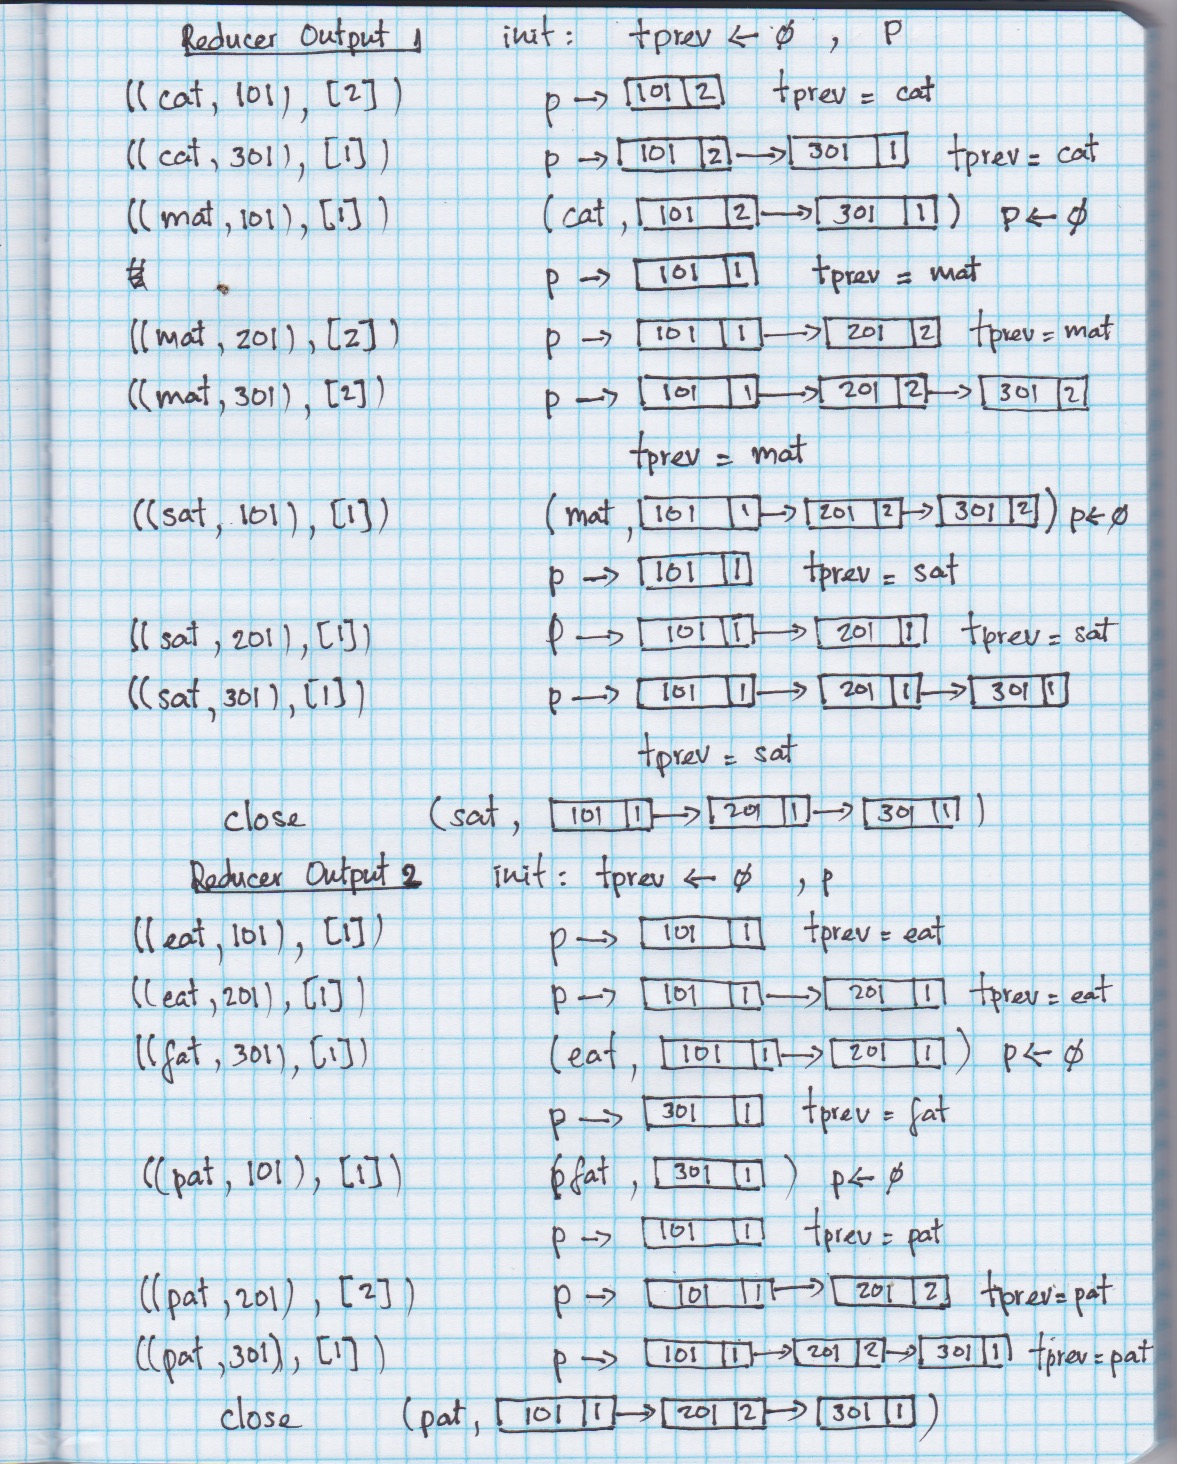 Reducer Output 1 init: tprev ← ø , P
((cat, 101), [2]) p → 101 2 tprev = cat
((cat, 301), [1]) p → 101 2 → 301 1 tprev = cat
((mat, 101), [1]) (cat, 101 2 → 301 1) p ← ø
p → 101 1 tprev = mat
((mat, 201), [2]) p → 101 1 → 201 2 tprev = mat
((mat, 301), [2]) p → 101 1 → 201 2 → 301 2
tprev = mat
((sat, 101), [1]) (mat, 101 1 → 201 2 → 301 2) p ← ø
p → 101 1 tprev = sat
((sat, 201), [1]) p → 101 1 → 201 1 tprev = sat
((sat, 301), [1]) p → 101 1 → 201 1 → 301 1
tprev = sat
close (sat, 101 1 → 201 1 → 301 1)
Reducer Output 2 init: tprev ← ø , p
((eat, 101), [1]) p → 101 1 tprev = eat
((eat, 201), [1]) p → 101 1 → 201 1 tprev = eat
((fat, 301), [1]) (eat, 101 1 → 201 1) p ← ø
p → 301 1 tprev = fat
((pat, 101), [1]) (fat, 301 1) p ← ø
p → 101 1 tprev = pat
((pat, 201), [2]) p → 101 1 → 201 2 tprev = pat
((pat, 301), [1]) p → 101 1 → 201 2 → 301 1 tprev = pat
close (pat, 101 1 → 201 2 → 301 1)